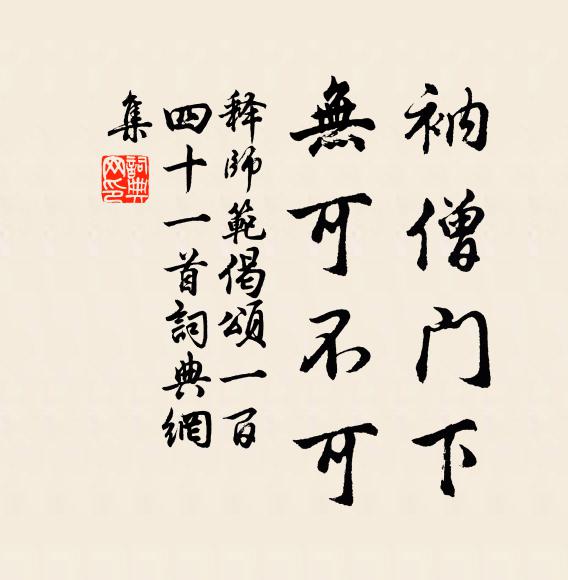 衲僧門下
無可不可
释師範偈頌一百
四十一首詞典網
集
詞典網印